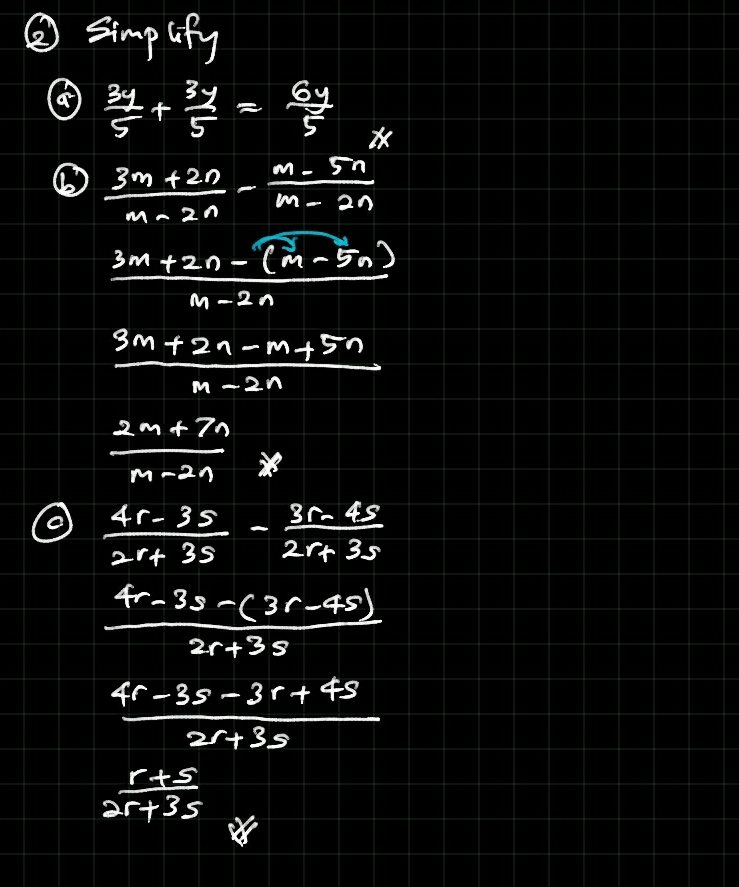 ② Simplify
ⓐ 3y/5 + 3y/5 = 6y/5
ⓑ (3m + 2n)/(m - 2n) - (m - 5n)/(m - 2n)
(3m + 2n - (m - 5n))/(m - 2n)
(3m + 2n - m + 5n)/(m - 2n)
(2m + 7n)/(m - 2n)
ⓒ (4r - 3s)/(2r + 3s) - (3r - 4s)/(2r + 3s)
(4r - 3s - (3r - 4s))/(2r + 3s)
(4r - 3s - 3r + 4s)/(2r + 3s)
(r + s)/(2r + 3s)